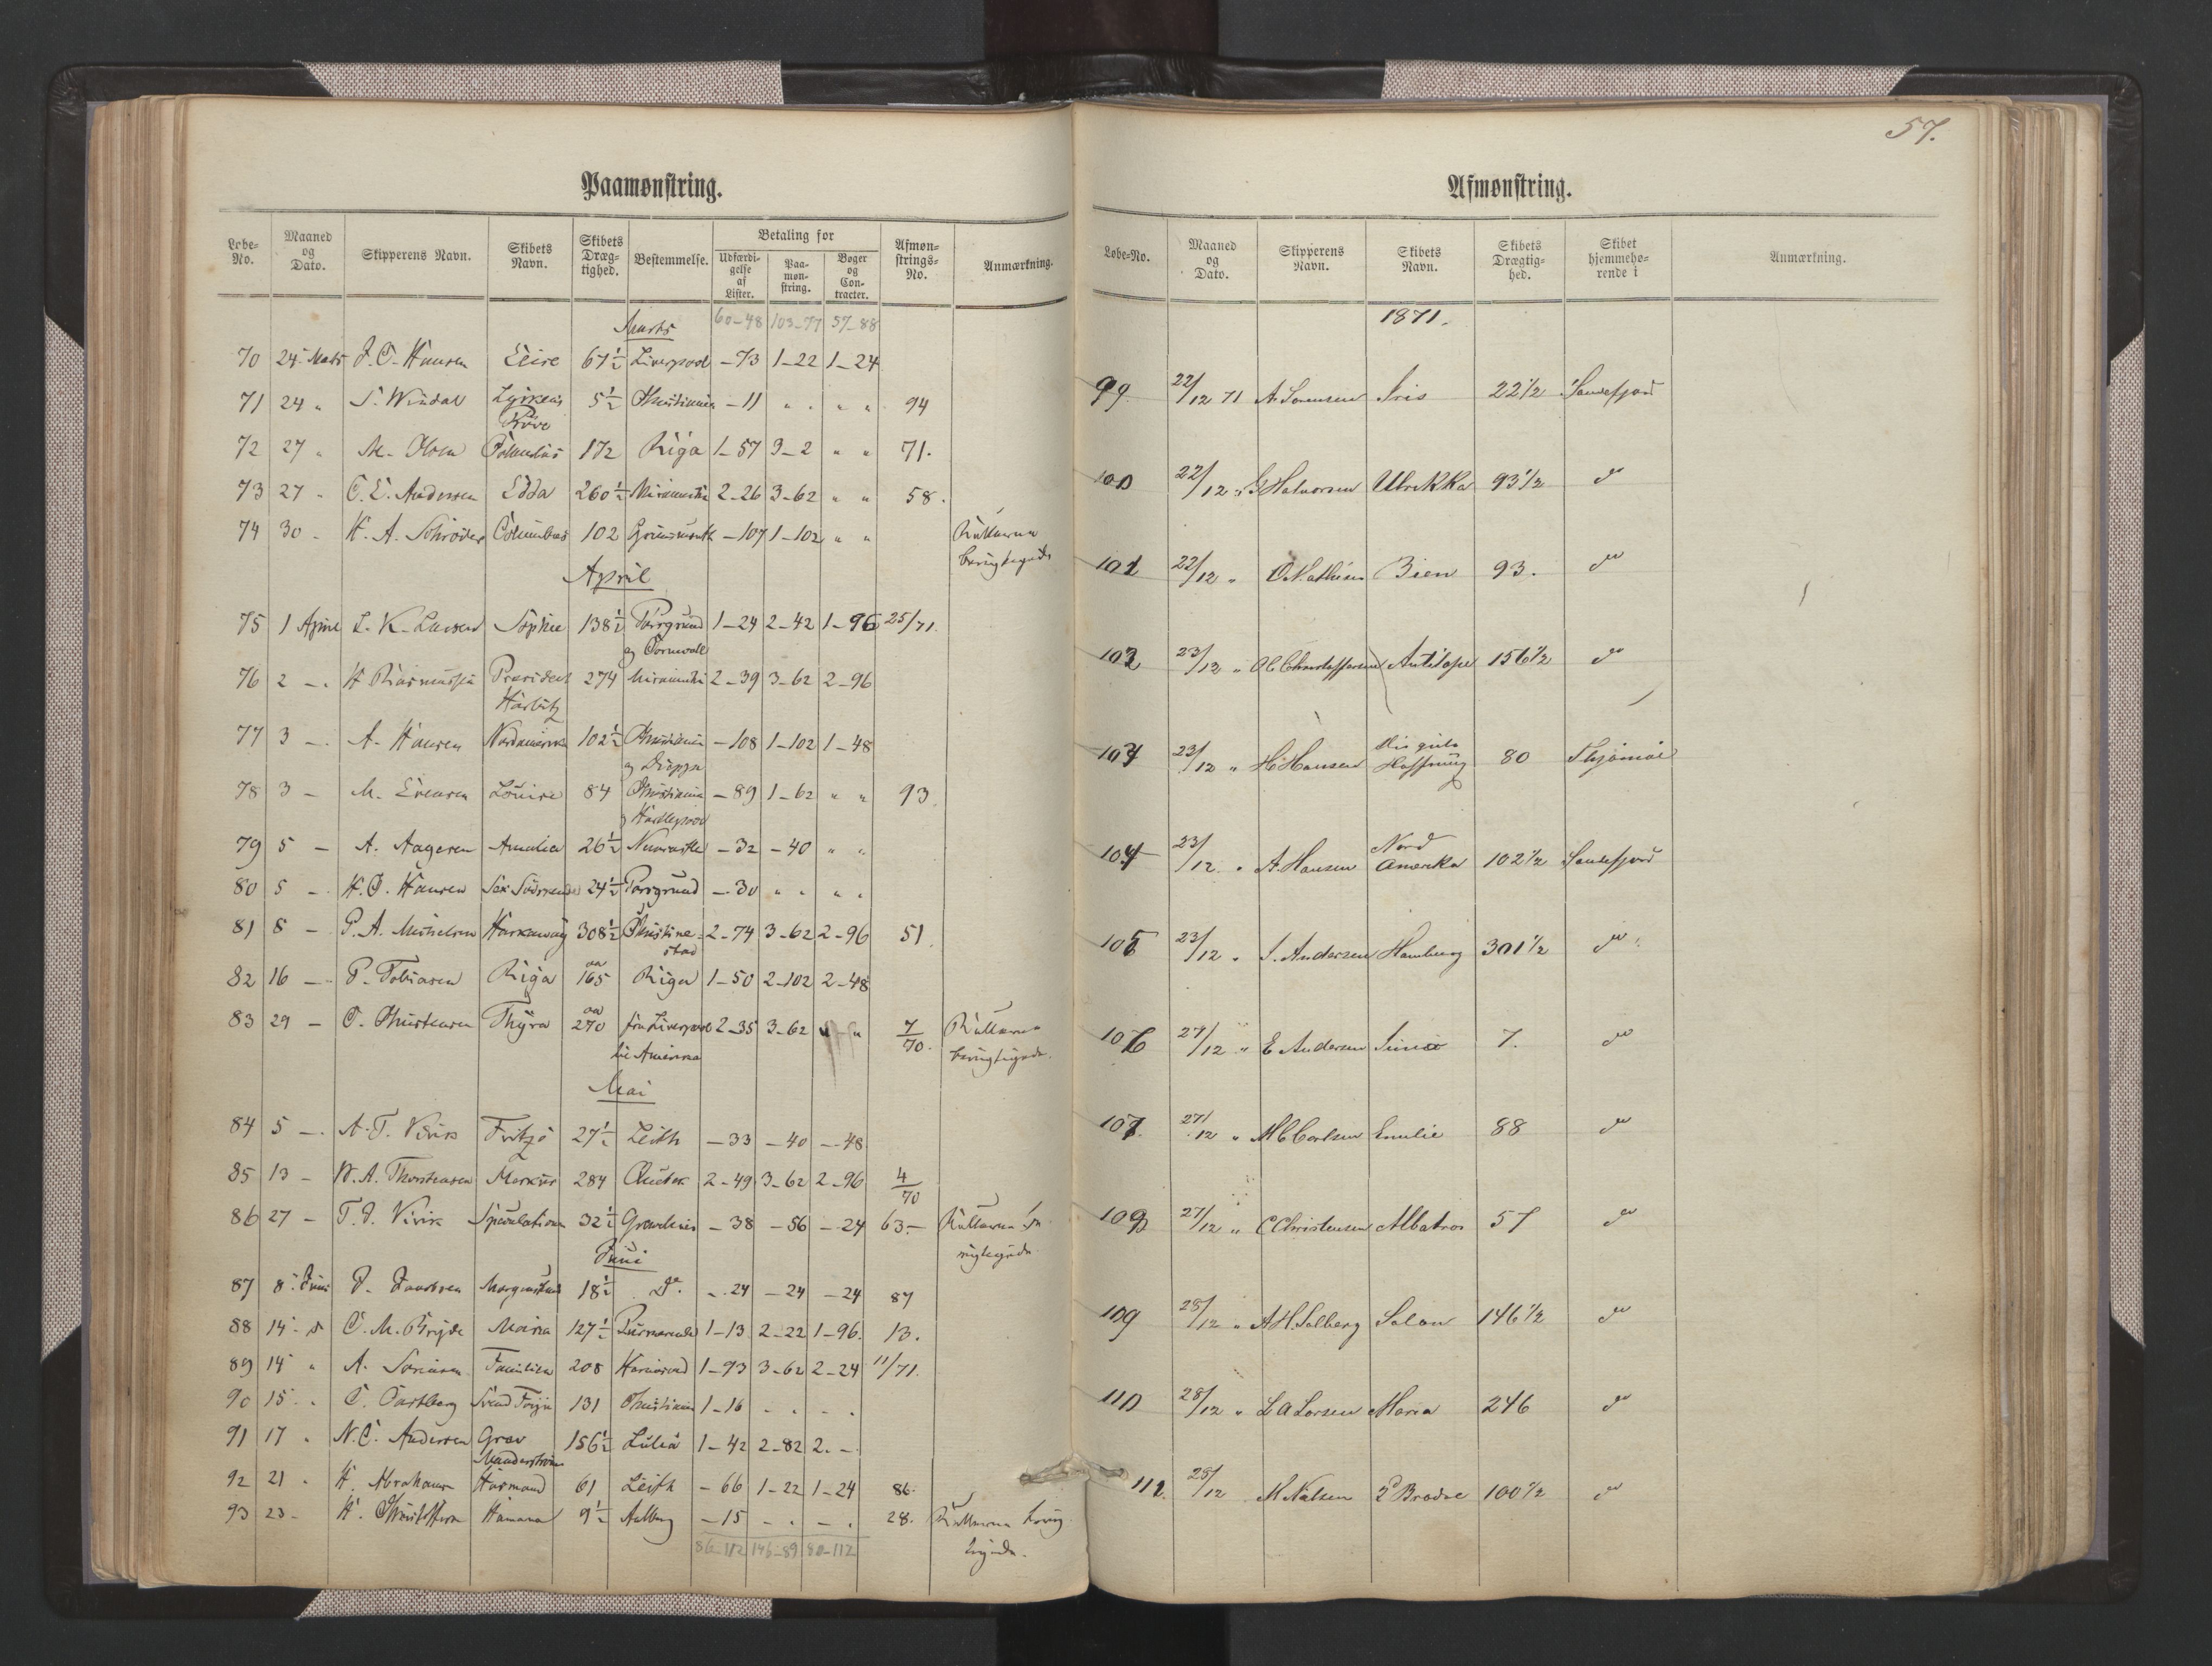 57.
Paamønstring.
Løbe-No. | Maaned og Dato. | Skipperens Navn. | Skibets Navn. | Skibets Dræg-tighed. | Bestemmelse. | Betaling for | Udfærdi-gelse af Lister. | Paa-møn-string. | Bøger og Con-tracter. | Afmøn-strings-No. | Anmærkning.
Marts 60-48 103-77 57-88
70 24 Marts J. C. Hansen Elise 67½ Liverpool -73 1-22 1-24
71 24 " S. Windal Lykkens 5½ Christiania -11 " " " " 94
Prøve
72 27 " M. Olsen 172 Riga 1-57 3-2 " " 71.
73 27 - C. E. Andersen Edda 260½ Miramichi 2-26 3-62 " " 58.
74 30 - H. A. Schrøder Columbus 102 Grimsmouth -107 1-102 " " Rullerne
berigtigede
April
75 1 April L. K. Larsen Sophie 138½ Porsgrund 1-24 2-42 1-96 25/71.
og Cornwall
76 2 - H Rasmussen President 274 Miramichi 2-39 3-62 2-96
Harbitz
77 3 - A. Hansen Nordamerika 102½ Christiania -108 1-102 1-48
og Dieppe
78 3 - M. Evensen Louise 84 Christiania -89 1-62 " " 93.
og Hartlepool
79 5 - A. Aagesen Amalia 26½ Newcastle -32 -40 " "
80 5 - H. C. Hansen Sex Sødskende 24½ Porsgrund -30 " " " "
81 8 - P. A. Michelsen Harkaway 308½ Christine- 2-74 3-62 2-96 51.
stad
82 16 - P. Tobiasen Riga 165 Riga 1-50 2-102 2-48
83 29 - C. Christensen Thyra 270 fra Liverpool 2-35 3-62 " " 7/70. Rullerne
til Amerika berigtigede.
Mai
84 5 - A. T. Virik Fritzø 27½ Leith -33 -40 -48
85 13 - W. A. Thorstensen Merkur 284 Quebek 2-49 3-62 2-96 4/70
86 27 - T. J. Virik Spekulation 32½ Gravelines -38 -56 -24 63.- Rullerne be
rigtigede
Juni
87 8 Juni J. Jacobsen 18½ Do. -24 -24 -24 87
88 14 - C. M. Bryde Maria 127½ 1-13 2-22 1-96. 13.
89 14 " A. Sørensen Familien 208 1-93 3-62 2-24 11/71.
90 15 " C. Castberg Svend Foyn 131 Christiania 1-16 - . - .
91 17 " N. C. Andersen Grev 156½ Luleå 1-42 2-82 2. -
Manderstrøm
92 21 " H. Abrahamsen 61 Leith -66 1-22 1-24 86.
93 23 - H. Christoffersen 9½ Aalborg -15 - . - . 28. Rullerne berig
tigede.
86-112 146-89 80-112
Afmønstring.
Løbe-No. | Maaned og Dato. | Skipperens Navn. | Skibets Navn. | Skibets Drægtig-hed. | Skibet hjemmehø-rende i | Anmærkning.
1871.
99 22/12 71 A. Sørensen Iris 22½ Sandefjord
100 22/12 " G Halvorsen Ulrikka 93½ do
101 22/12 " O Mathisen Bien 93. do
102 23/12 " O C Christoffersen Antilope 156½ do
103 23/12 " H. Hansen Die gute 80 Thjømøe
Hoffnung
104 23/12 " A. Hansen Nord 102½ Sandefjord
Amerika
105 23/12 " S. Andersen Hamburg 301½ do
106 27/12 " E Andersen 7. do
107. 27/12 " M C Carlsen Emilie 88 do
108 27/12 " C Christensen Albatros 57 do
109 28/12 " A H. Solberg Solon 146½ do
110 28/12 " L A Larsen Maria 246 do
111. 28/12 M Nielsen 2 Brødre 100½ do